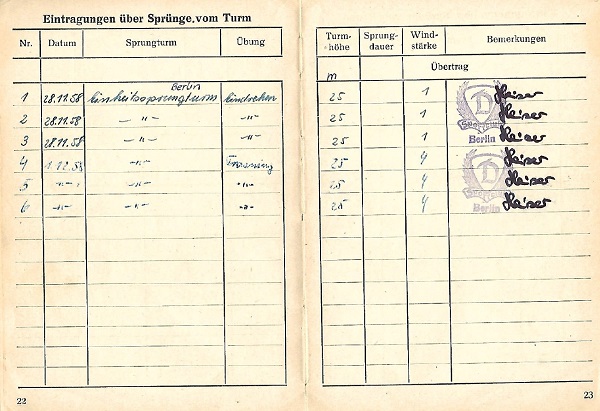 Eintragungen über Sprünge vom Turm
Nr. Datum Sprungturm Übung
Berlin
1 28.11.58 Einheitssprungturm Eindrehen
2 28.11.58 -"- -"-
3 28.11.58 -"- -"-
4 1.12.58 -"-
5 -"- -"- -"-
6 -"- -"- -"-
22
Turm- Sprung- Wind- Bemerkungen
höhe dauer stärke
Übertrag
m
25 1 Heiser
25 1 Heiser
25 1 Berlin Heiser
25 4 Heiser
25 4 Heiser
25 4 Berlin Heiser
23